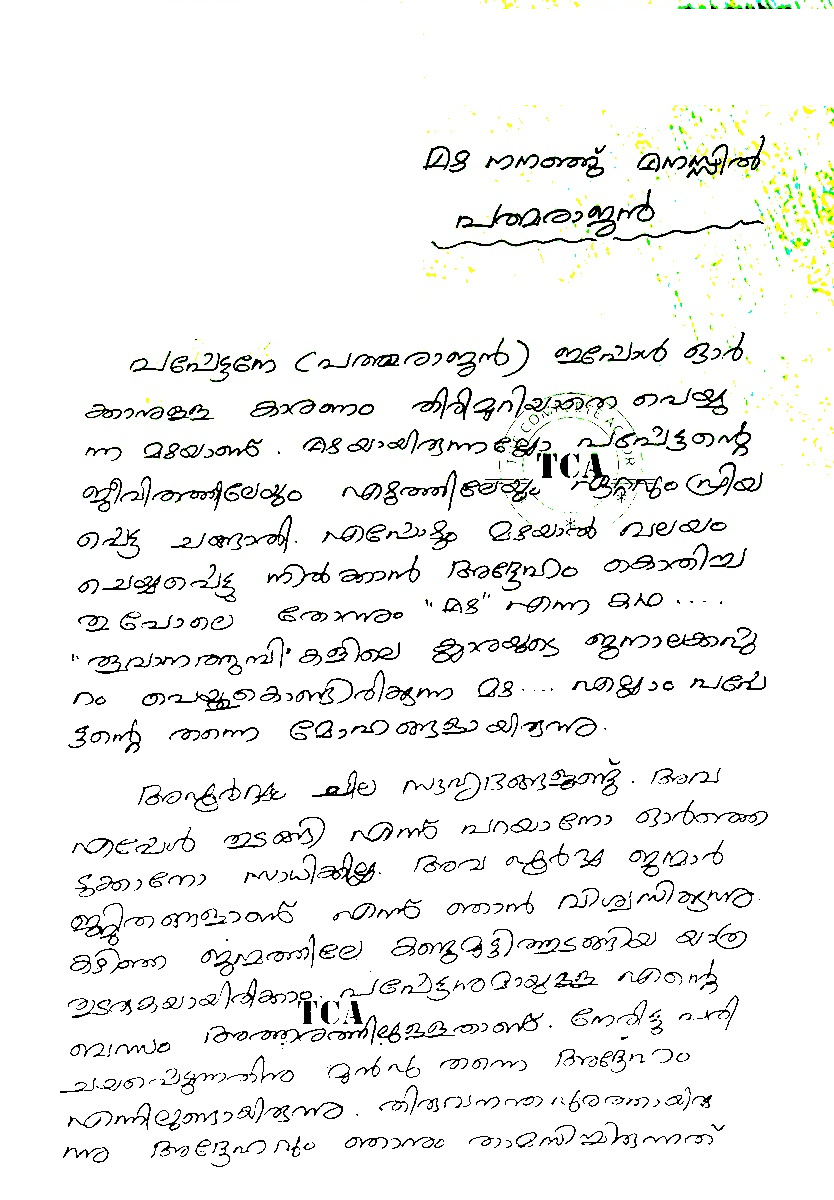 മഴ നനഞ്ഞ് മനസ്സിൽ
പത്മരാജൻ
പപ്പേട്ടനേ (പത്മരാജൻ) ഇപ്പോൾ ഓർ
ക്കാനുള്ള കാരണം തിരിമുറിയാതെ പെയ്യു
ന്ന മഴയാണ്. മഴയായിരുന്നല്ലോ പപ്പേട്ടന്റെ
TCA
ജീവിതത്തിലേയും എഴുത്തിലേയും ഏറ്റവും പ്രിയ
പ്പെട്ട ചങ്ങാതി. എപ്പോഴും മഴയാൽ വലയം
ചെയ്യപ്പെട്ടു നിൽക്കാൻ അദ്ദേഹം കൊതിച്ച
തു പോലെ തോന്നും "മഴ" എന്ന കഥ ....
"തൂവാനത്തുമ്പി"കളിലെ ക്ലാരയുടെ ജനാലക്കപ്പു
റം പെയ്തുകൊണ്ടിരിക്കുന്ന മഴ .... എല്ലാം പപ്പേ
ട്ടന്റെ തന്നെ മോഹങ്ങളായിരുന്നു.
അപൂർവ്വം ചില സുഹൃദങ്ങളുണ്ട്. അവ
എപ്പോൾ തുടങ്ങി എന്ന് പറയാനോ ഓർത്തെ
ടുക്കാനോ സാധിക്കില്ല. അവ പൂർവ്വ ജന്മാർ
ജ്ജിതങ്ങളാണ് എന്ന് ഞാൻ വിശ്വസിക്കുന്നു.
കഴിഞ്ഞ ജന്മത്തിലേ കണ്ടുമുട്ടിത്തുടങ്ങിയ യാത്ര
തുടരുകയായിരിക്കാം. പപ്പേട്ടനുമായുള്ള എന്റെ
TCA
ബന്ധം അത്തരത്തിലുള്ളതാണ്. നേരിട്ടു പരി
ചയപ്പെടുന്നതിനു മുൻപു തന്നെ അദ്ദേഹം
എന്നിലുണ്ടായിരുന്നു. തിരുവനന്തപുരത്തായിരു
ന്നു അദ്ദേഹവും ഞാനും താമസിച്ചിരുന്നത്